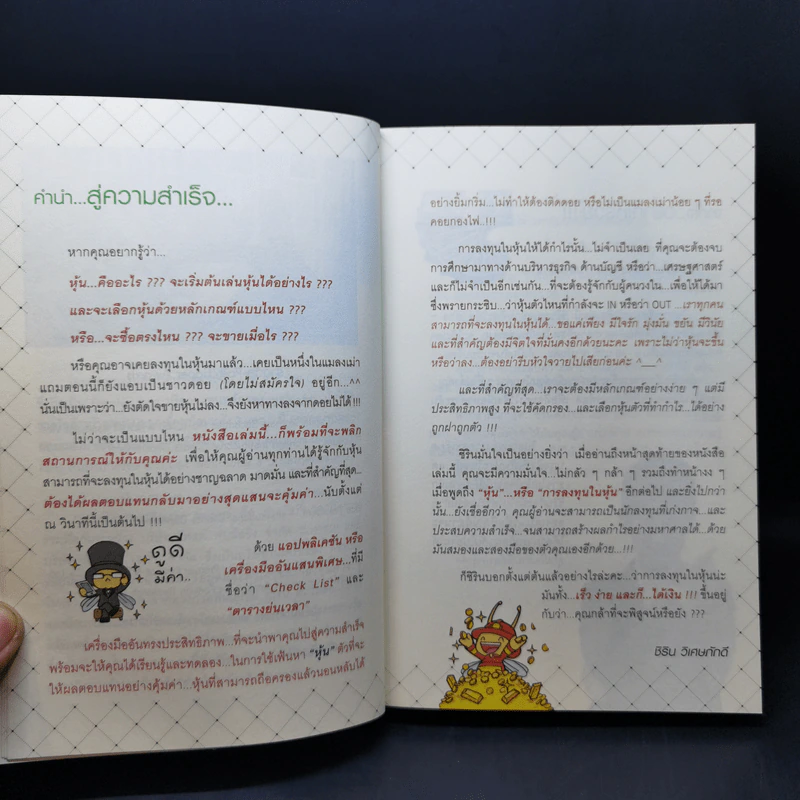 คำนำ...สู่ความสำเร็จ...
หากคุณอยากรู้ว่า...
หุ้น...คืออะไร ??? จะเริ่มต้นเล่นหุ้นได้อย่างไร ???
และจะเลือกหุ้นด้วยหลักเกณฑ์แบบไหน ???
หรือ...จะซื้อตรงไหน ??? จะขายเมื่อไร ???
หรือคุณอาจเคยลงทุนในหุ้นมาแล้ว...เคยเป็นหนึ่งในแมลงเม่า
แถมตอนนี้ก็ยังแอบเป็นชาวดอย (โดยไม่สมัครใจ) อยู่อีก...^^
นั่นเป็นเพราะว่า...ยังตัดใจขายหุ้นไม่ลง...จึงยังหาทางลงจากดอยไม่ได้ !!!
ไม่ว่าจะเป็นแบบไหน หนังสือเล่มนี้...ก็พร้อมที่จะพลิก
สถานการณ์ให้กับคุณค่ะ เพื่อให้คุณผู้อ่านทุกท่านได้รู้จักกับหุ้น
สามารถที่จะลงทุนในหุ้นได้อย่างชาญฉลาด มาดมั่น และที่สำคัญที่สุด...
ต้องได้ผลตอบแทนกลับมาอย่างสุดแสนจะคุ้มค่า...นับตั้งแต่
ณ วินาทีนี้เป็นต้นไป !!!
ดูดี
มีค่า..
ด้วย แอปพลิเคชัน หรือ
เครื่องมืออันแสนพิเศษ...ที่มี
ชื่อว่า "Check List" และ
"ตารางย่นเวลา"
เครื่องมืออันทรงประสิทธิภาพ ที่จะนำพาคุณไปสู่ความสำเร็จ
พร้อมจะให้คุณได้เรียนรู้และทดลอง...ในการใช้เฟ้นหา "หุ้น" ตัวที่จะ
ให้ผลตอบแทนอย่างคุ้มค่า...หุ้นที่สามารถถือครองแล้วนอนหลับได้
อย่างยิ้มกริ่ม...ไม่ทำให้ต้องติดดอย หรือไม่เป็นแมลงเม่าน้อย ๆ ที่รอ
คอยกองไฟ..!!!
การลงทุนในหุ้นให้ได้กำไรนั้น...ไม่จำเป็นเลย ที่คุณจะต้องจบ
การศึกษามาทางด้านบริหารธุรกิจ ด้านบัญชี หรือว่า...เศรษฐศาสตร์
และก็ไม่จำเป็นอีกเช่นกัน...ที่จะต้องรู้จักกับผู้คนวงใน...เพื่อให้ได้มา
ซึ่งพรายกระซิบ...ว่าหุ้นตัวไหนที่กำลังจะ IN หรือว่า OUT ...เราทุกคน
สามารถที่จะลงทุนในหุ้นได้...ขอแค่เพียง มีใจรัก มุ่งมั่น ขยัน มีวินัย
และที่สำคัญต้องมีจิตใจที่มั่นคงอีกด้วยนะคะ เพราะไม่ว่าหุ้นจะขึ้น
หรือว่าลง...ต้องอย่ารีบหัวใจวายไปเสียก่อนค่ะ ^__^
และที่สำคัญที่สุด...เราจะต้องมีหลักเกณฑ์อย่างง่าย ๆ แต่มี
ประสิทธิภาพสูง ที่จะใช้คัดกรอง...และเลือกหุ้นตัวที่ทำกำไร...ได้อย่าง
ถูกฝาถูกตัว !!!
ชิรินมั่นใจเป็นอย่างยิ่งว่า เมื่ออ่านถึงหน้าสุดท้ายของหนังสือ
เล่มนี้ คุณจะมีความมั่นใจ...ไม่กลัว ๆ กล้า ๆ รวมถึงทำหน้างง ๆ
เมื่อพูดถึง "หุ้น"...หรือ "การลงทุนในหุ้น" อีกต่อไป และยิ่งไปกว่า
นั้น...ยังเชื่ออีกว่า คุณผู้อ่านจะสามารถเป็นนักลงทุนที่เก่งกาจ...และ
ประสบความสำเร็จ...จนสามารถสร้างผลกำไรอย่างมหาศาลได้...ด้วย
มันสมองและสองมือของตัวคุณเองอีกด้วย...!!!
ก็ชิรินบอกตั้งแต่ต้นแล้วอย่างไรล่ะคะ...ว่าการลงทุนในหุ้นน่ะ
มันทั้ง...เร็ว ง่าย และก็...ได้เงิน !!! ขึ้นอยู่
กับว่า...คุณกล้าที่จะพิสูจน์หรือยัง ???
ชิริน วิเศษภักดี